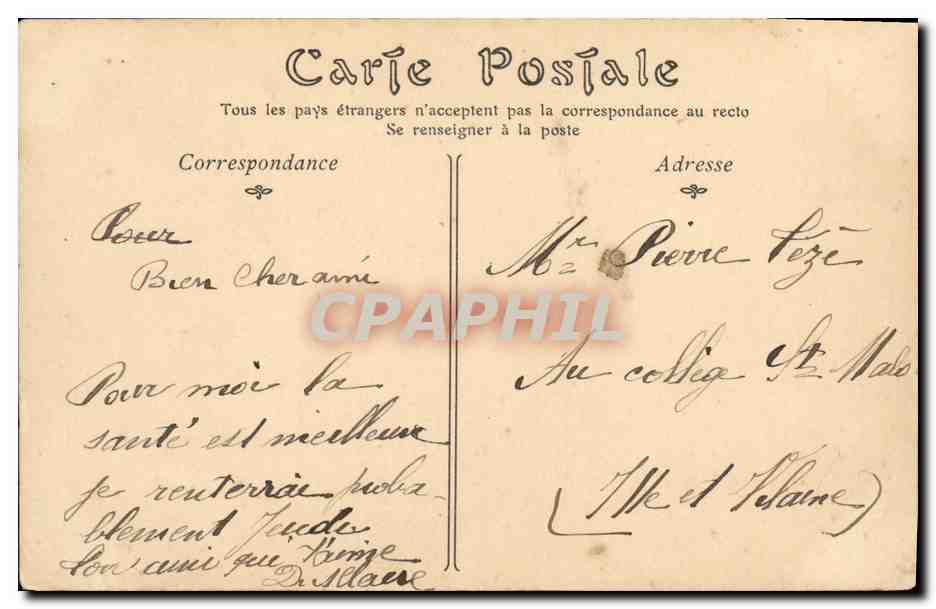 Carte Postale
Tous les pays étrangers n'acceptent pas la correspondance au recto
Se renseigner à la poste
Correspondance
Pour
Bien Cher ami
Pour moi la
santé est meilleure
je renterrai proba-
blement Jeudi
ton ami qui t'aime
D. Allaire
Adresse
Mr Pierre Vezé
Au collège St Malo
(Ille et Vilaine)
CPAPHIL